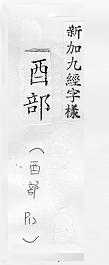 新加九經字樣
酉部
(酉部